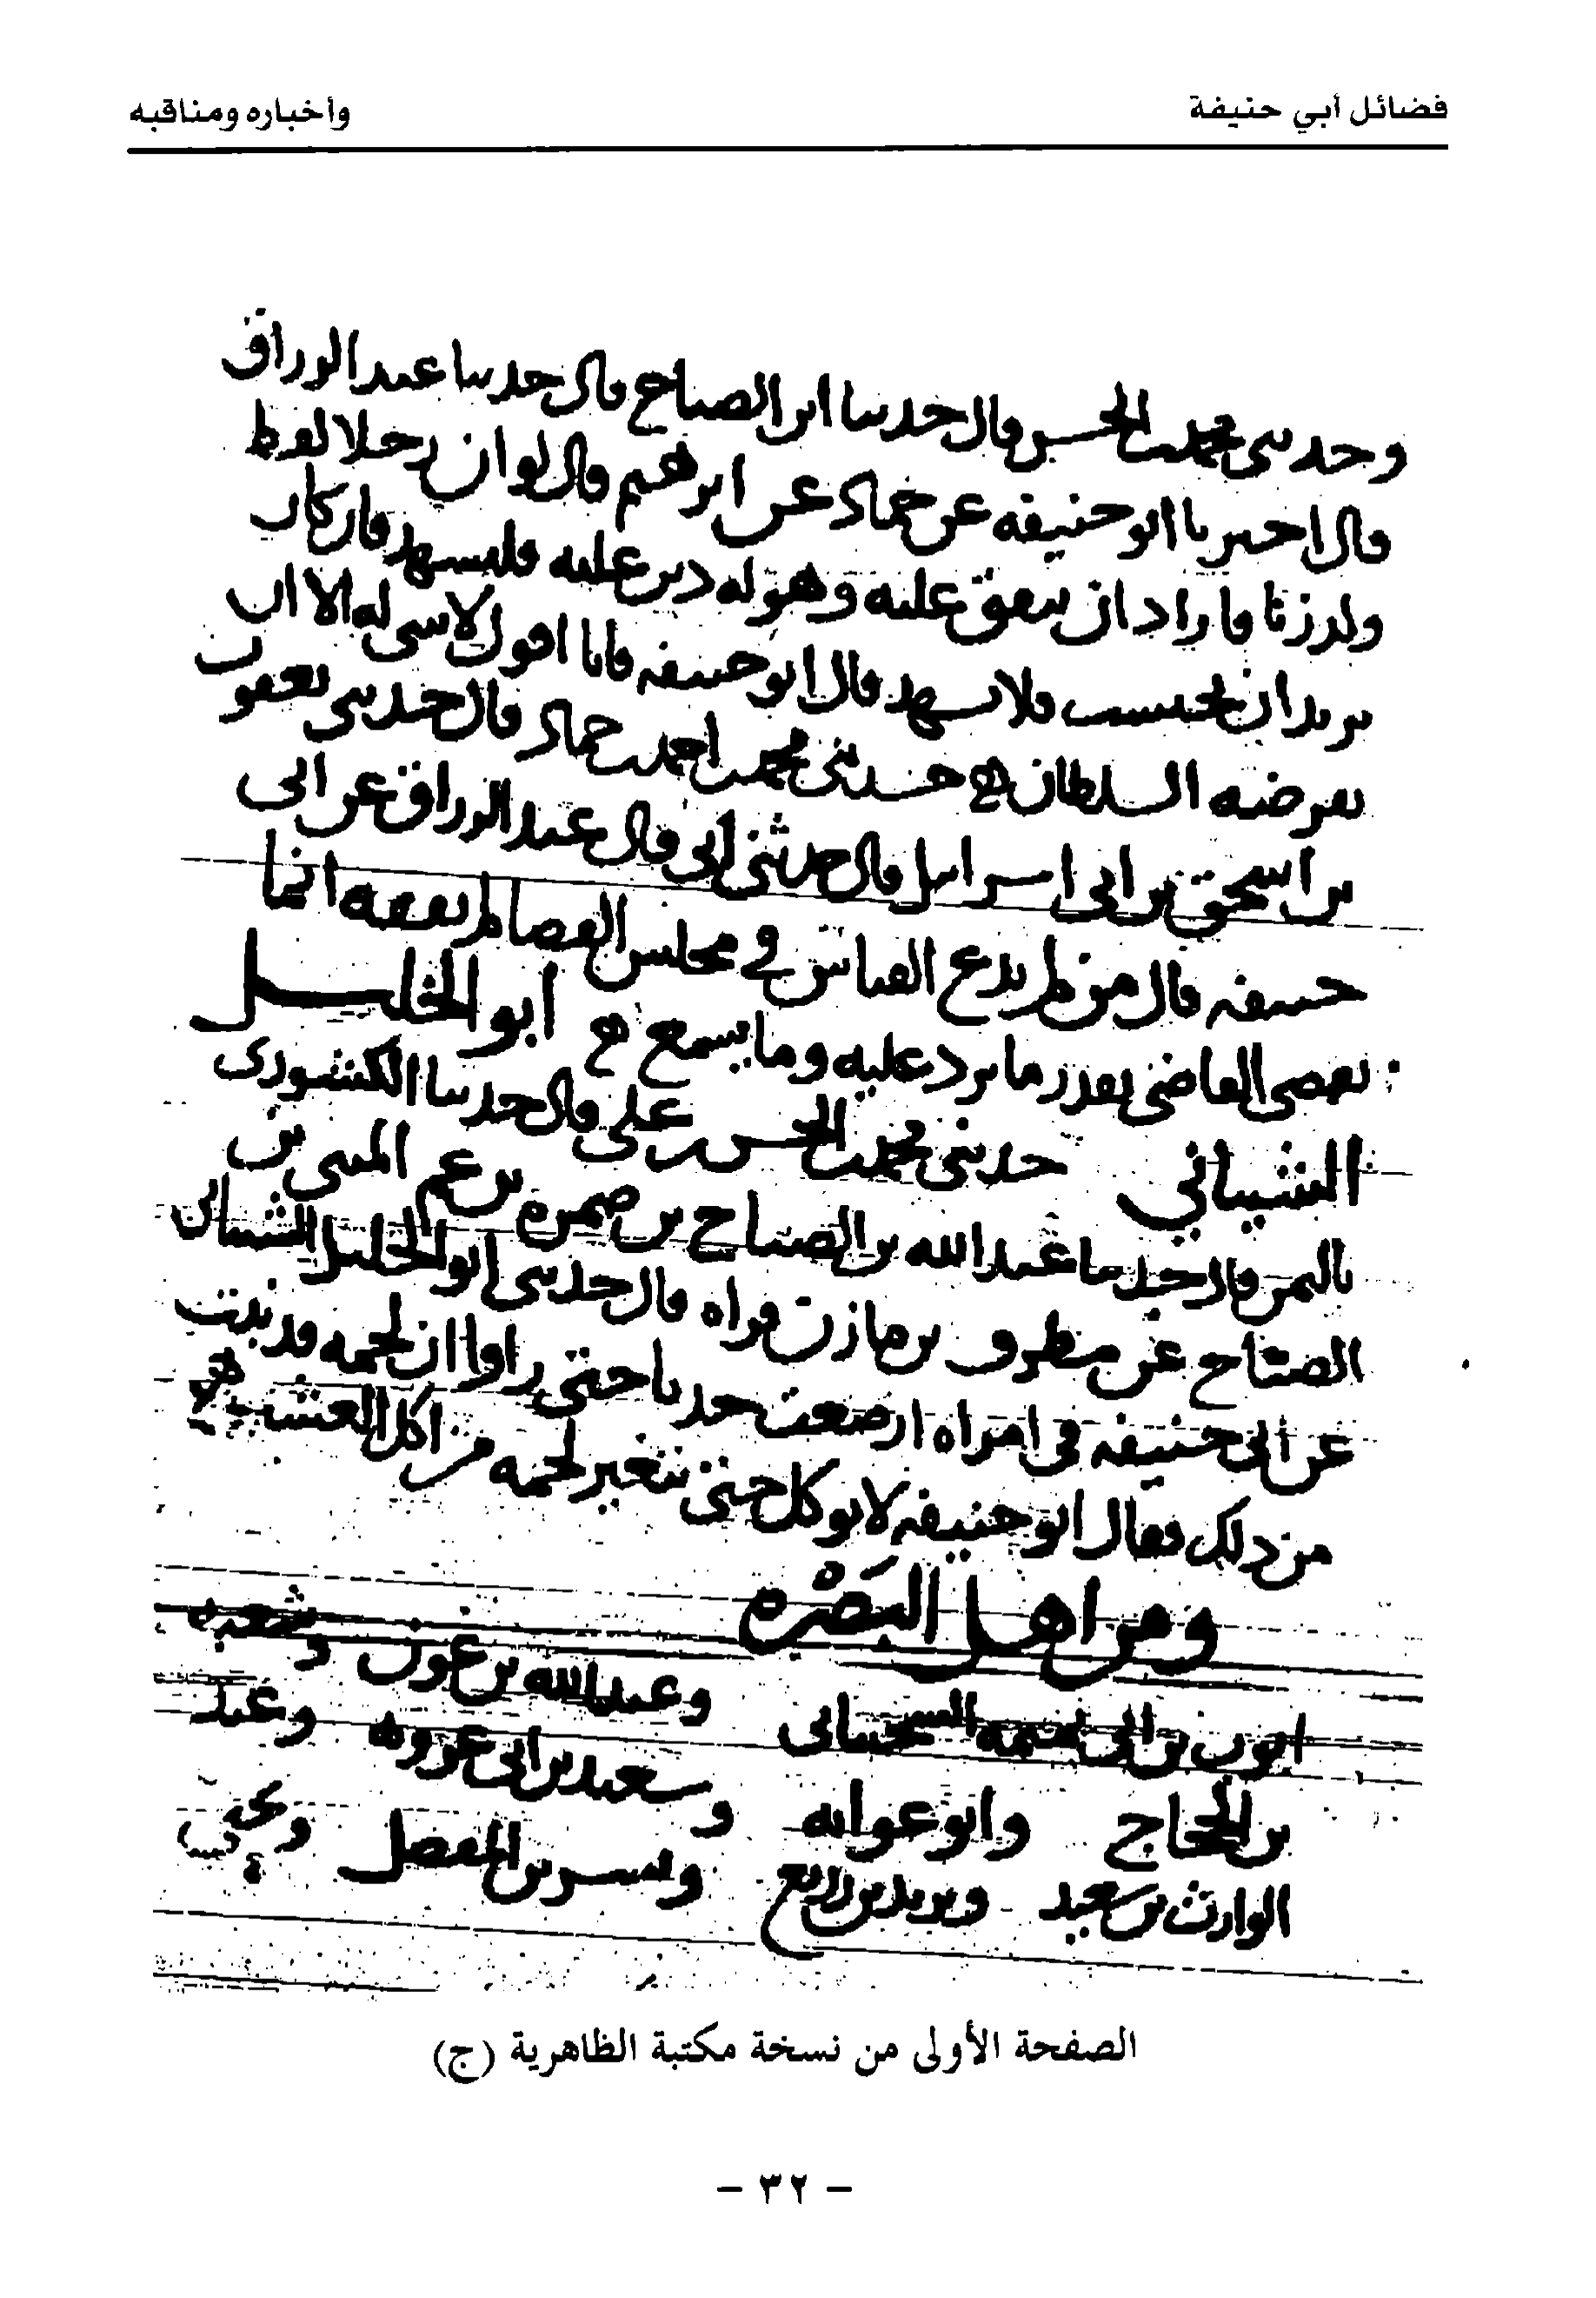 فضائل أبي حنيفة وأخباره ومناقبه
وحدثني محمد بن الحسن قال حدثنا ابن الصباح قال حدثنا عبد الرزاق
قال اخبرنا ابو حنيفه عن حماد عن ابرهيم قال لو ان رجلا لقط
ولد زنا فاراد ان ينفق عليه وهو له دين عليه فليشهد فان كان
يريد ان يحتسب فلا يشهد قال ابو حنيفه فانا اقول لا شي له الا ان
يفرضه السلطان حدثني محمد بن احمد بن حماد قال حدثني يعقوب
بن اسحق بن ابي اسرايل قال حدثني ابي قال عبد الرزاق عن ابي
حنيفه قال من لم يدع القياس في مجلس القضا لم يفقه انما
يقضي القاضي بقدر ما يرد عليه وما يسمع ابو الخليل
الشيباني حدثني محمد بن الحسن بن علي قال حدثنا الكشوري
باليمن قال حدثنا عبد الله بن الصباح بن ضمره بن عم المثنى بن
الصباح عن مطرف بن مازن قراه قال حدثني ابو الخليل الشيباني
عن ابي حنيفه في امراه ارضعت جديا حتى راوا ان لحمه قد نبت
من ذلك فقال ابو حنيفه لا يوكل حتى يتغير لحمه من اكل العشب
ومن اهل البَصْره
ايوب بن ابي تميمه السختياني وعبد الله بن عون وشعبه
بن الحجاج وابو عوانه وسعيد بن ابي عروبه وعبد
الوارث بن سعيد ويزيد بن زريع وبشر بن المفضل ويحيى
الصفحة الأولى من نسخة مكتبة الظاهرية (ج)
- ٣٢ -